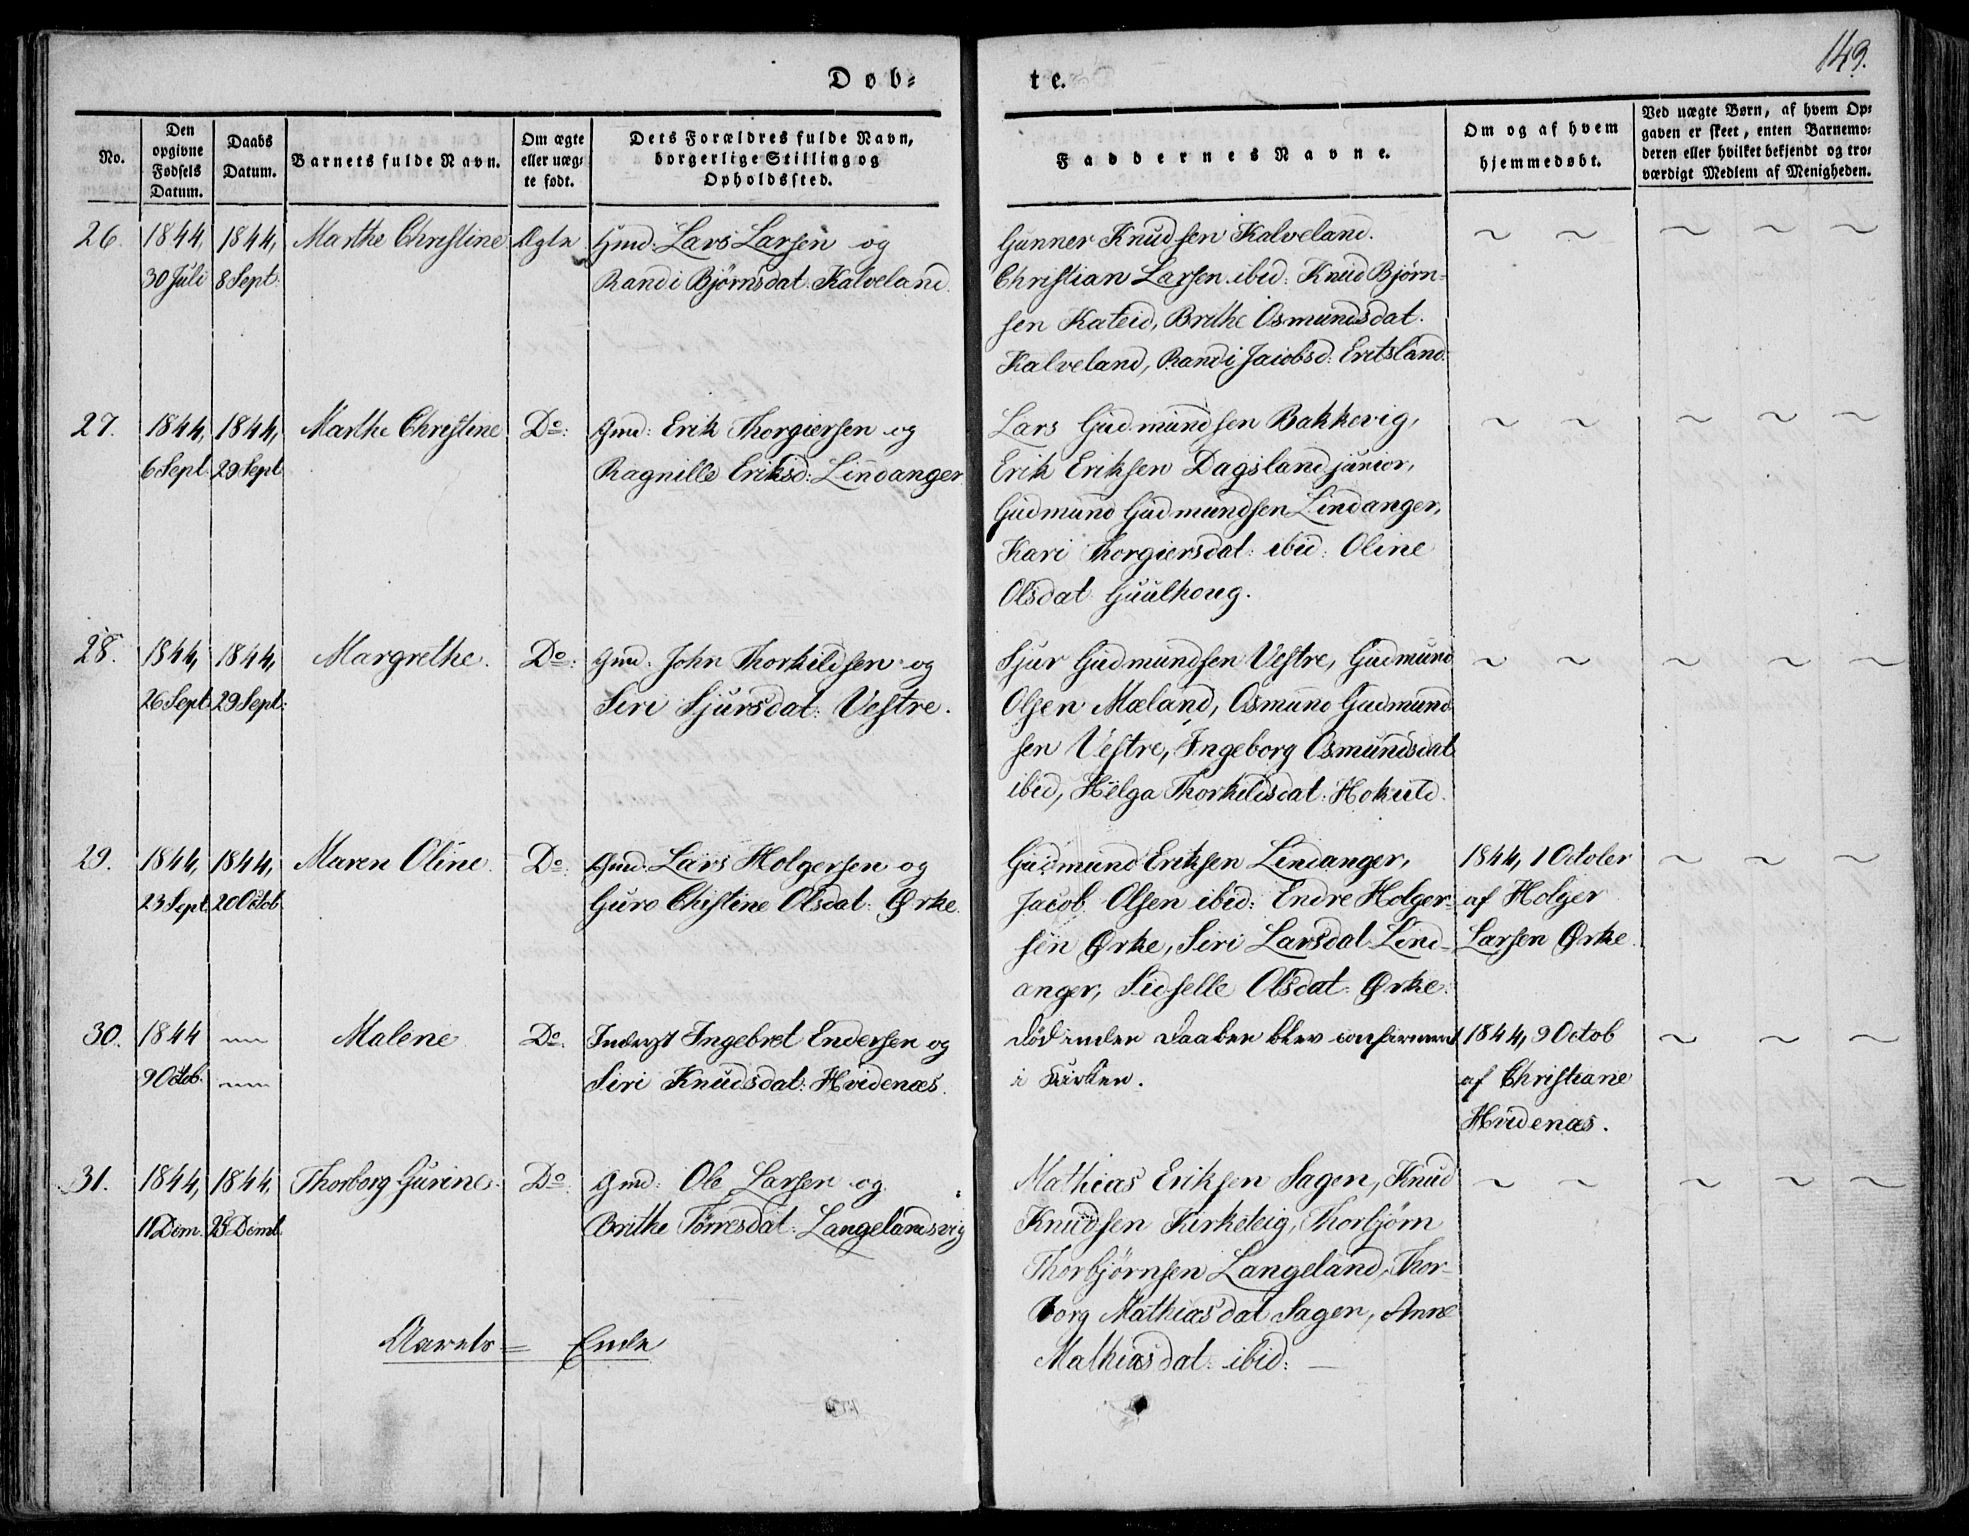 149.
Døb-
te.
No.
Den
opgivne
Fødsels
Datum.
Daabs
Datum.
Barnets fulde Navn.
Om ægte
eller uæg-
te født.
Dets Forældres fulde Navn,
borgerlige Stilling og
Opholdssted.
Faddernes Navne.
Om og af hvem
hjemmedøbt.
Ved uægte Børn, af hvem Op-
gaven er skeet, enten Barnemo-
deren eller hvilket bekjendt og tro-
værdigt Medlem af Menigheden.
26.
1844,
30 Juli
1844,
8 Sept:
Marthe Christine
Ægte
Gmd: Lars Larsen og
Randi Bjørnsdat: Kalveland.
Gunner Knudsen Kalveland.
Christian Larsen ibid: Knud Bjørn-
sen Kateid, Brithe Osmundsdat.
Kalveland, Randi Jacobsd: Eritsland.
27.
1844,
6 Sept
1844,
29 Sept
Marthe Christine
Do:
Gmd: Erik Thorgiersen og
Ragnille Eriksd: Lindanger
Lars Gudmundsen Bakkevig,
Erik Eriksen Dagsland junior,
Gudmund Gudmundsen Lindanger,
Kari Thorgiersdat: ibid: Oline
Olsdat Guulhoug.
28.
1844,
26 Sept
1844,
29 Sept:
Margrethe.
Do:
Gmd. John Thorkildsen og
Siri Sjursdat: Vestre.
Sjur Gudmundsen Vestre, Gudmund
Olsen Mæland, Osmund Gudmund
sen Vestre, Ingeborg Osmundsdat
ibid, Helga Thorkildsdat: Hokuld.
29.
1844,
23 Sept
1844,
20 Octob
Maren Oline.
Do:
Gmd. Lars Holgersen og
Guro Christine Olsdat: Ørke.
Gudmund Eriksen Lindanger,
Jacob Olsen ibid: Endre Holger-
sen Ørke, Siri Larsdat Lind-
anger, Sidselle Olsdat: Ørke.
1844, 1 October
af Holger
Larsen Ørke
30.
1844
9 Octob.
Malene
Do.
Inderst Ingebret Endersen og
Siri Knudsdat: Hvidenæs.
død inden Daaben blev confirmeret
i Kirken.
1844, 9 Octob
af Christiane
Hvidenæs.
31.
1844,
11 Dem.
1844,
25 Demb
Thorborg Gurine
Do:
Gmd: Ole Larsen og
Brithe Tørresdat: Langelandsvig
Mathias Eriksen Sagen, Knud
Knudsen Kirketeig, Thorbjørn
Thorbjørnsen Langeland, Thor-
borg Mathiasdat Sagen, Anne
Mathiasdat: ibid:
Aarets = Ende